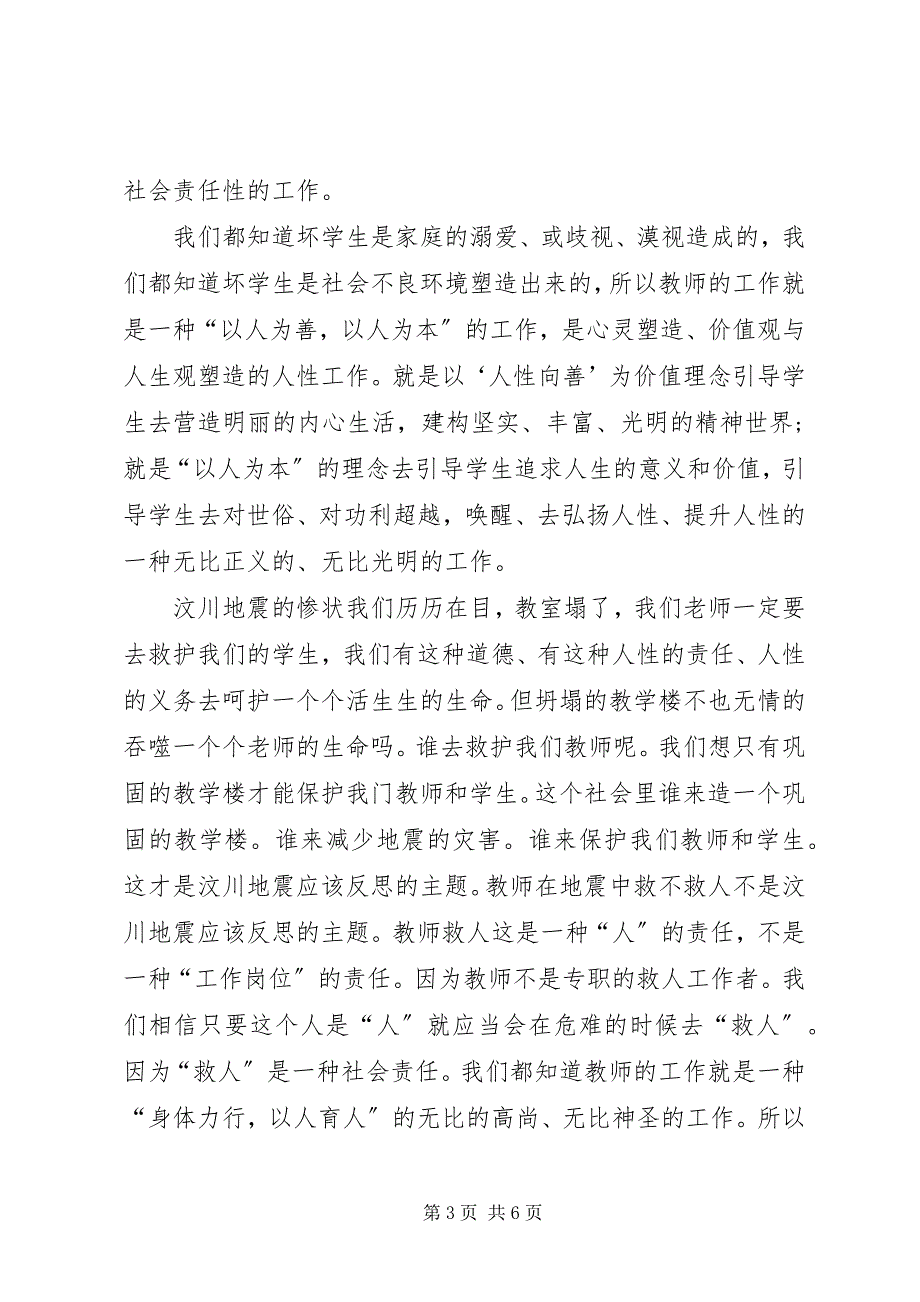 社会责任性的工作。
我们都知道坏学生是家庭的溺爱、或歧视、漠视造成的，我
们都知道坏学生是社会不良环境塑造出来的，所以教师的工作就
是一种“以人为善，以人为本〞的工作，是心灵塑造、价值观与
人生观塑造的人性工作。就是以‘人性向善’为价值理念引导学
生去营造明丽的内心生活，建构坚实、丰富、光明的精神世界；
就是“以人为本〞的理念去引导学生追求人生的意义和价值，引
导学生去对世俗、对功利超越，唤醒、去弘扬人性、提升人性的
一种无比正义的、无比光明的工作。
汶川地震的惨状我们历历在目，教室塌了，我们老师一定要
去救护我们的学生，我们有这种道德、有这种人性的责任、人性
的义务去呵护一个个活生生的生命。但坍塌的教学楼不也无情的
吞噬一个个老师的生命吗。谁去救护我们教师呢。我们想只有巩
固的教学楼才能保护我门教师和学生。这个社会里谁来造一个巩
固的教学楼。谁来减少地震的灾害。谁来保护我们教师和学生。
这才是汶川地震应该反思的主题。教师在地震中救不救人不是汶
川地震应该反思的主题。教师救人这是一种“人〞的责任，不是
一种“工作岗位〞的责任。因为教师不是专职的救人工作者。我
们相信只要这个人是“人〞就应当会在危难的时候去“救人〞。
因为“救人〞是一种社会责任。我们都知道教师的工作就是一种
“身体力行，以人育人〞的无比的高尚、无比神圣的工作。所以
第 3 页 共 6 页